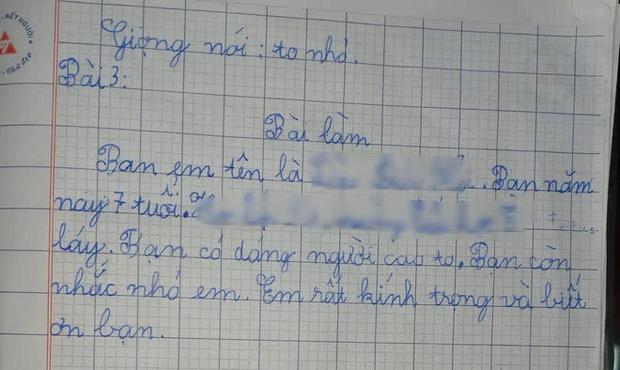 NẾT NGƯỜI
Giọng nói: to nhỏ.
Bài 3:
Bài làm
Bạn em tên là . Bạn năm
nay 7 tuổi.
láy. Bạn có dáng người cao to. Bạn còn
nhắc nhở em. Em rất kính trọng và biết
ơn bạn.